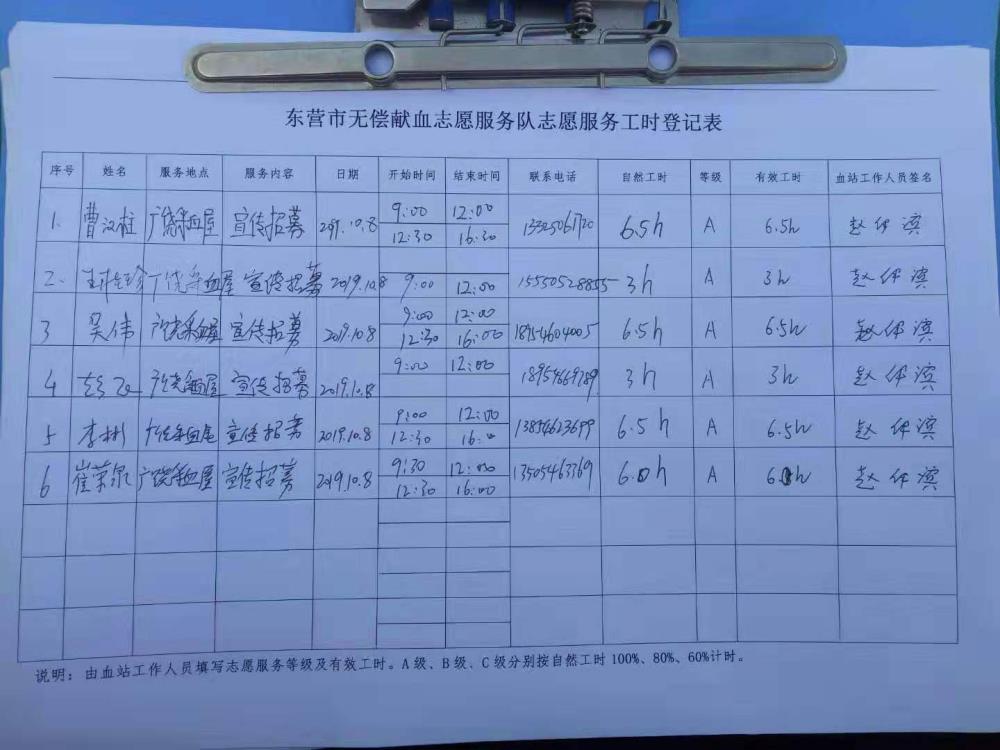 东营市无偿献血志愿服务队志愿服务工时登记表
序号 姓名 服务地点 服务内容 日期 开始时间 结束时间 联系电话 自然工时 等级 有效工时 血站工作人员签名
1. 曹汉柱 广饶采血屋 宣传招募 2019.10.8 9:00 12:00 6.5h A 6.5h 赵伴滨
12:30 16:30
2. 广饶采血屋 宣传招募 2019.10.8 9:00 12:00 15550528855 3h A 3h 赵伴滨
3 吴伟 广饶采血屋 宣传招募 2019.10.8 9:00 12:00 18954604005 6.5h A 6.5h 赵伴滨
12:30 16:00
4 广饶采血屋 宣传招募 2019.10.8 9:00 12:00 18954669789 3h A 3h 赵伴滨
5 李彬 广饶采血屋 宣传招募 2019.10.8 9:00 12:00 13854623699 6.5h A 6.5h 赵伴滨
12:30 16:00
6 崔荣泉 广饶采血屋 宣传招募 2019.10.8 9:30 12:00 13505463369 6.0h A 6.0h 赵伴滨
12:30 16:00
说明: 由血站工作人员填写志愿服务等级及有效工时。A级、B级、C级分别按自然工时100%、80%、60%计时。